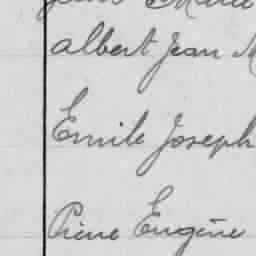 albert Jean
Emile Joseph
Pierre Eugène